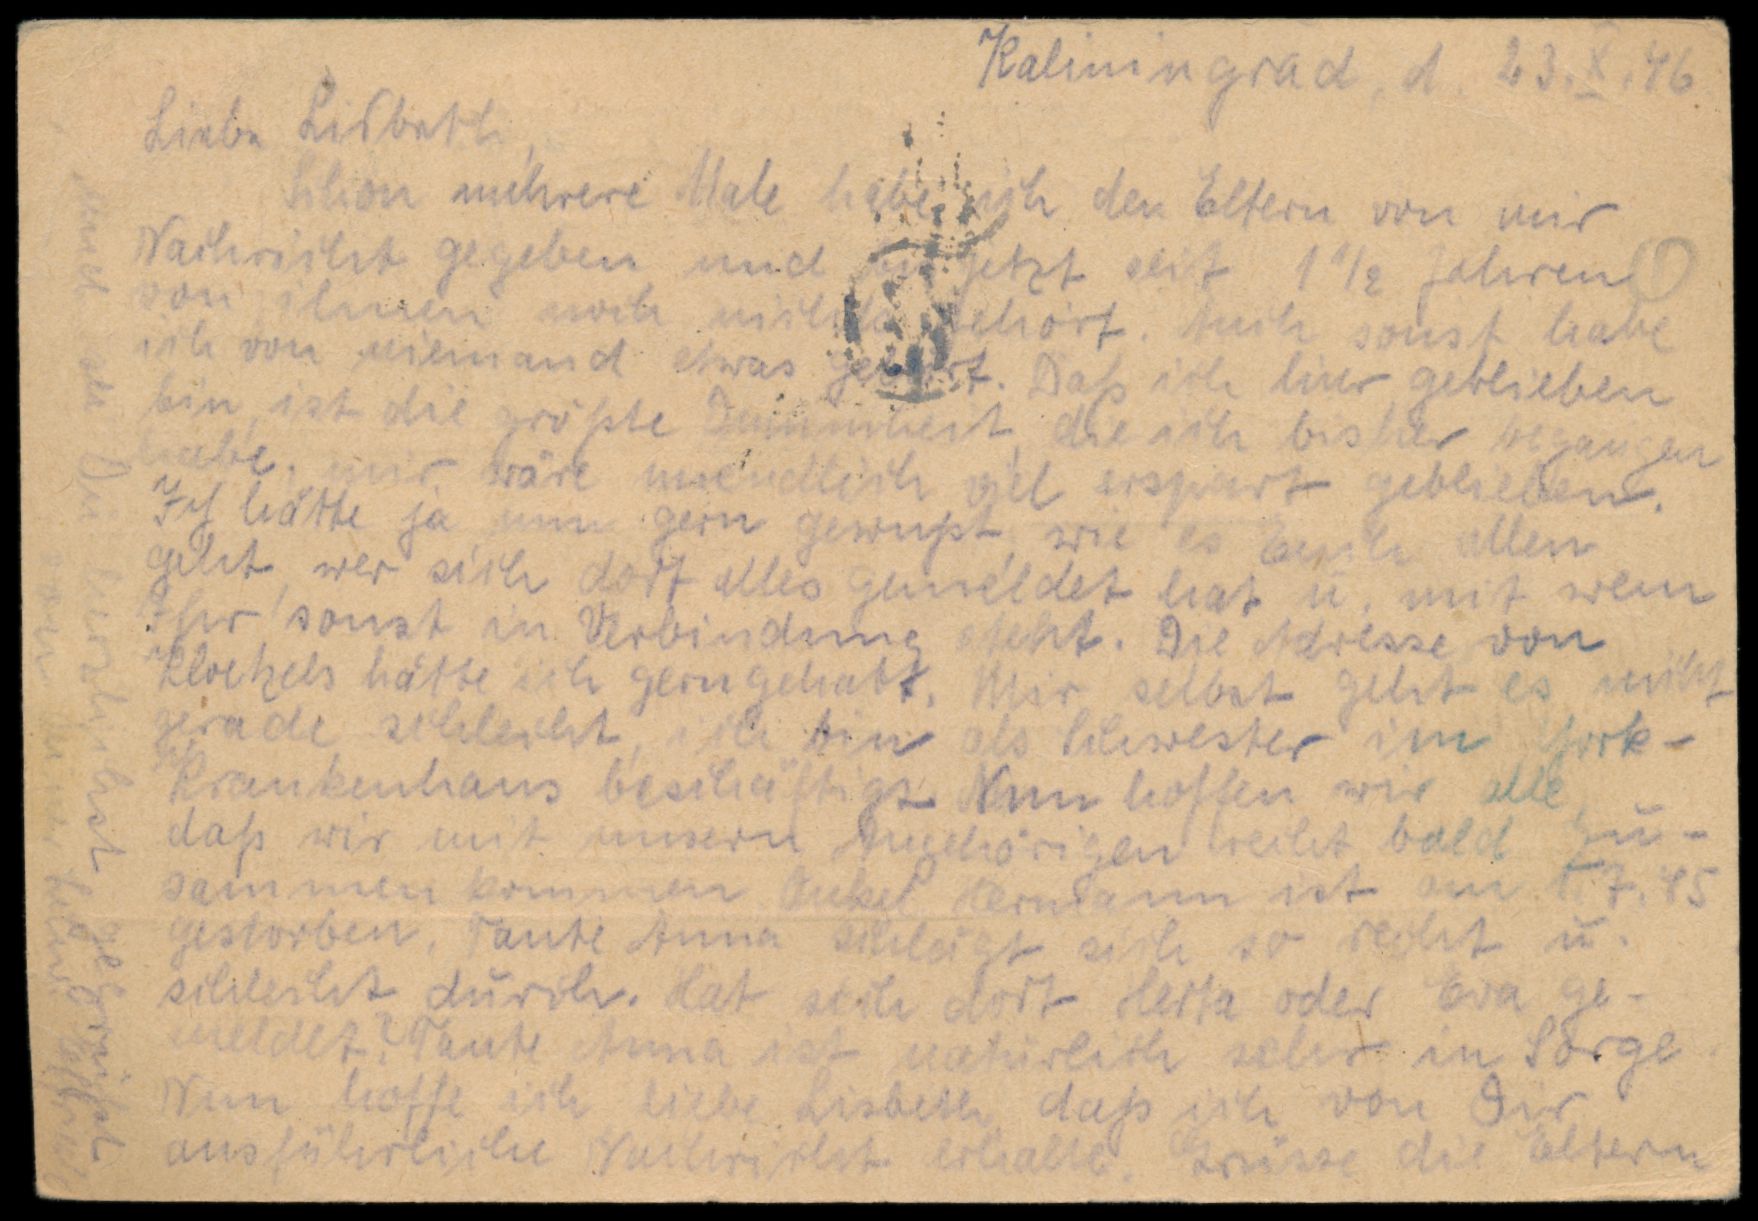 Kaliningrad, d. 23. X. 46
Liebe Lisbeth,
Schon mehrere Male habe ich den Eltern von mir
Nachricht gegeben und bis jetzt seit 1 1/2 Jahren
von ihnen noch nichts gehört. Auch sonst habe
ich von niemand etwas gehört. Daß ich hier geblieben
bin, ist die größte Dummheit, die ich bisher begangen
habe, mir wäre unendlich viel erspart geblieben.
Ich hätte ja nun gern gewußt, wie es Euch allen
geht, wer sich dort alles gemeldet hat u. mit wem
Ihr sonst in Verbindung steht. Die Adresse von
Kloetzels hätte ich gern gehabt. Mir selbst geht es nicht
gerade schlecht, ich bin als Schwester im York-
Krankenhaus beschäftigt. Nun hoffen wir alle,
daß wir mit unsern Angehörigen recht bald zu-
sammen kommen. Onkel Hermann ist am 1.7.45
gestorben. Tante Anna schlägt sich so recht u.
schlecht durch. Hat sich dort Herta oder Eva ge-
meldet? Tante Anna ist natürlich sehr in Sorge.
Nun hoffe ich, liebe Lisbeth, daß ich von Dir
ausführliche Nachricht erhalte. Grüsse die Eltern
und sei Du herzlichst gegrüßt
von Deiner